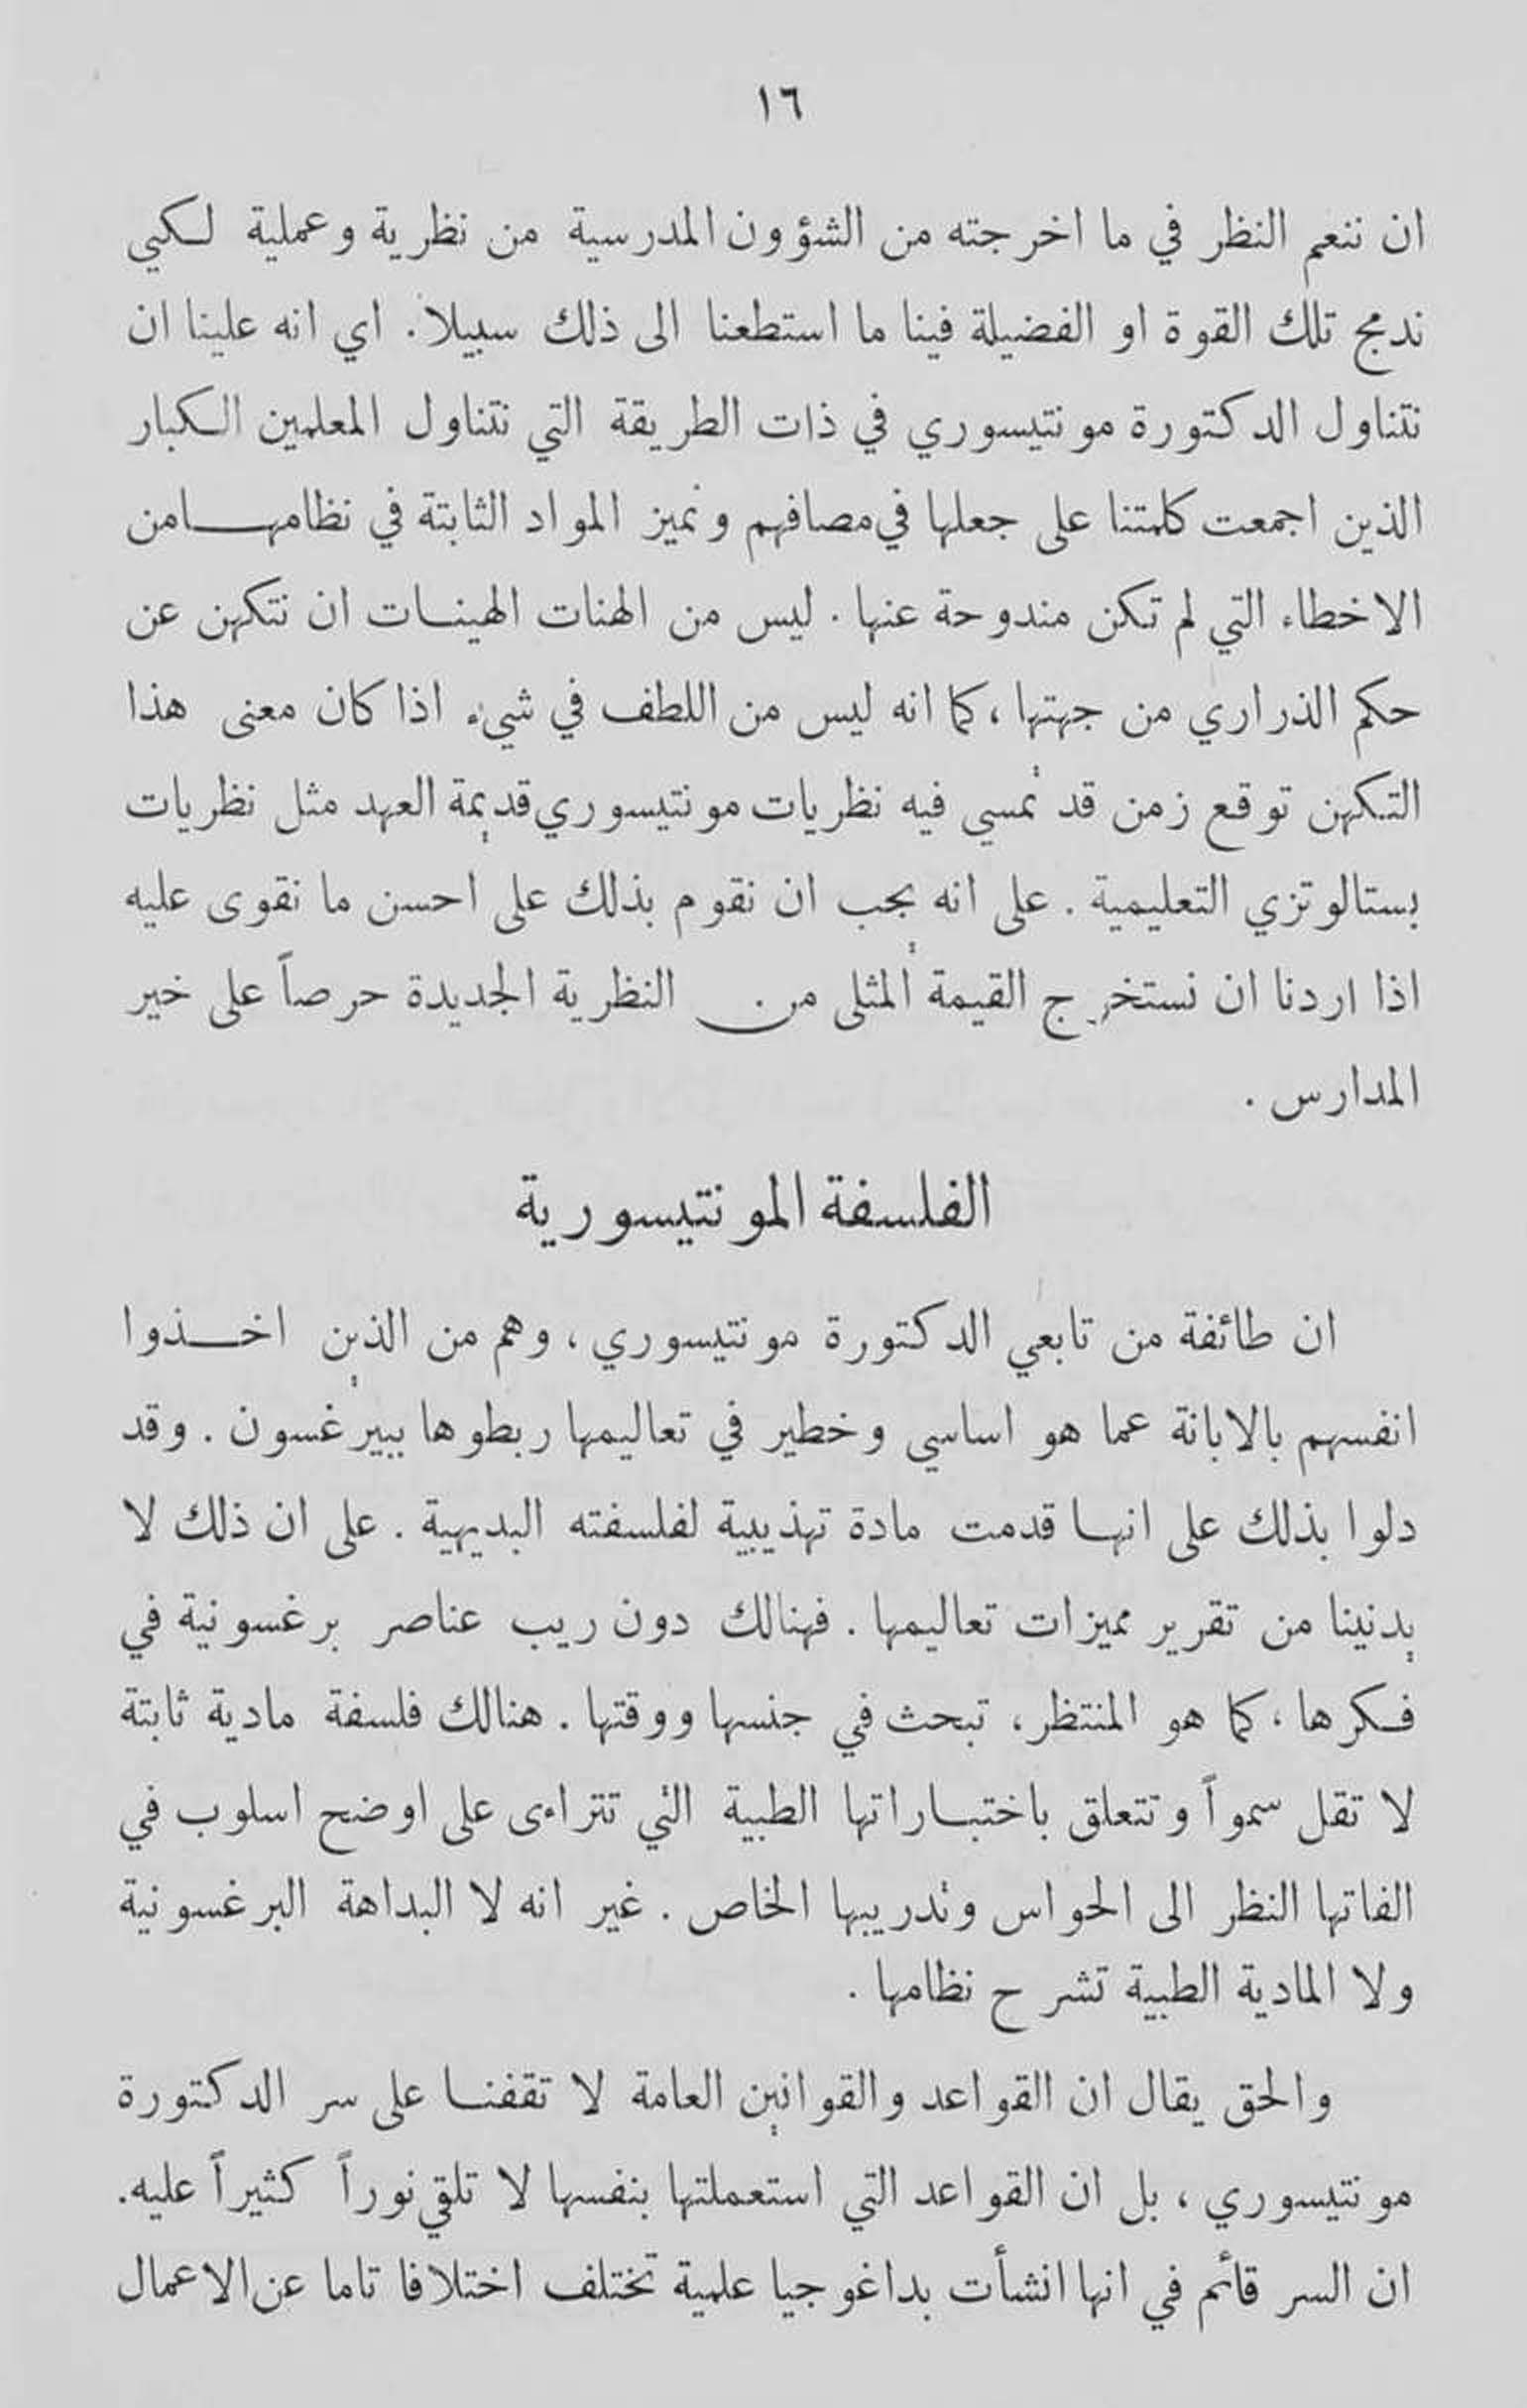 ١٦
ان ننعم النظر في ما اخرجته من الشؤون المدرسية من نظرية وعملية لكي
ندمج تلك القوة او الفضيلة فينا ما استطعنا الى ذلك سبيلا . اي انه علينا ان
نتناول الدكتورة مونتيسوري في ذات الطريقة التي نتناول المعلمين الكبار
الذين اجمعت كلمتنا على جعلها في مصافهم ونميز المواد الثابتة في نظامها من
الاخطاء التي لم تكن مندوحة عنها . ليس من الهنات الهينات ان نتكهن عن
حكم الذراري من جهتها ، كما انه ليس من اللطف في شيء اذا كان معنى هذا
التكهن توقع زمن قد تمسي فيه نظريات مونتيسوري قديمة العهد مثل نظريات
بستالوتزي التعليمية . على انه يجب ان نقوم بذلك على احسن ما نقوى عليه
اذا اردنا ان نستخرج القيمة المثلى من النظرية الجديدة حرصاً على خير
المدارس .
الفلسفة المونتيسورية
ان طائفة من تابعي الدكتورة مونتيسوري ، وهم من الذين اخذوا
انفسهم بالابانة عما هو اساسي وخطير في تعاليمها ربطوها ببيرغسون . وقد
دلوا بذلك على انها قدمت مادة تهذيبية لفلسفته البديهية . على ان ذلك لا
يدنينا من تقرير مميزات تعاليمها . فهنالك دون ريب عناصر برغسونية في
فكرها ، كما هو المنتظر ، تبحث في جنسها ووقتها . هنالك فلسفة مادية ثابتة
لا تقل سمواً وتتعلق باختباراتها الطبية التي تتراءى على اوضح اسلوب في
الفاتها النظر الى الحواس وتدريبها الخاص . غير انه لا البداهة البرغسونية
ولا المادية الطبية تشرح نظامها .
والحق يقال ان القواعد والقوانين العامة لا تقفنا على سر الدكتورة
مونتيسوري ، بل ان القواعد التي استعملتها بنفسها لا تلقي نوراً كثيراً عليه.
ان السر قائم في انها انشأت بداغوجيا علمية تختلف اختلافا تاما عن الاعمال